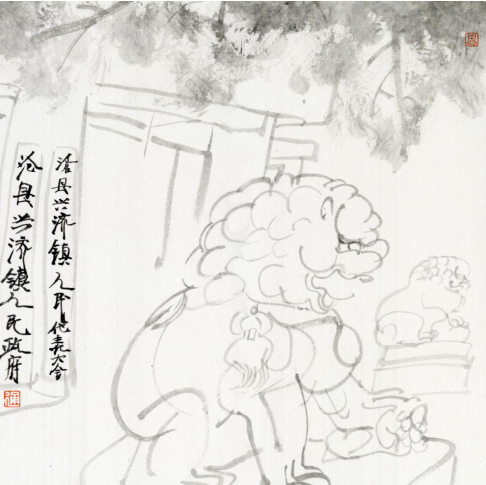 沧县兴济镇人民代表大会
沧县兴济镇人民政府